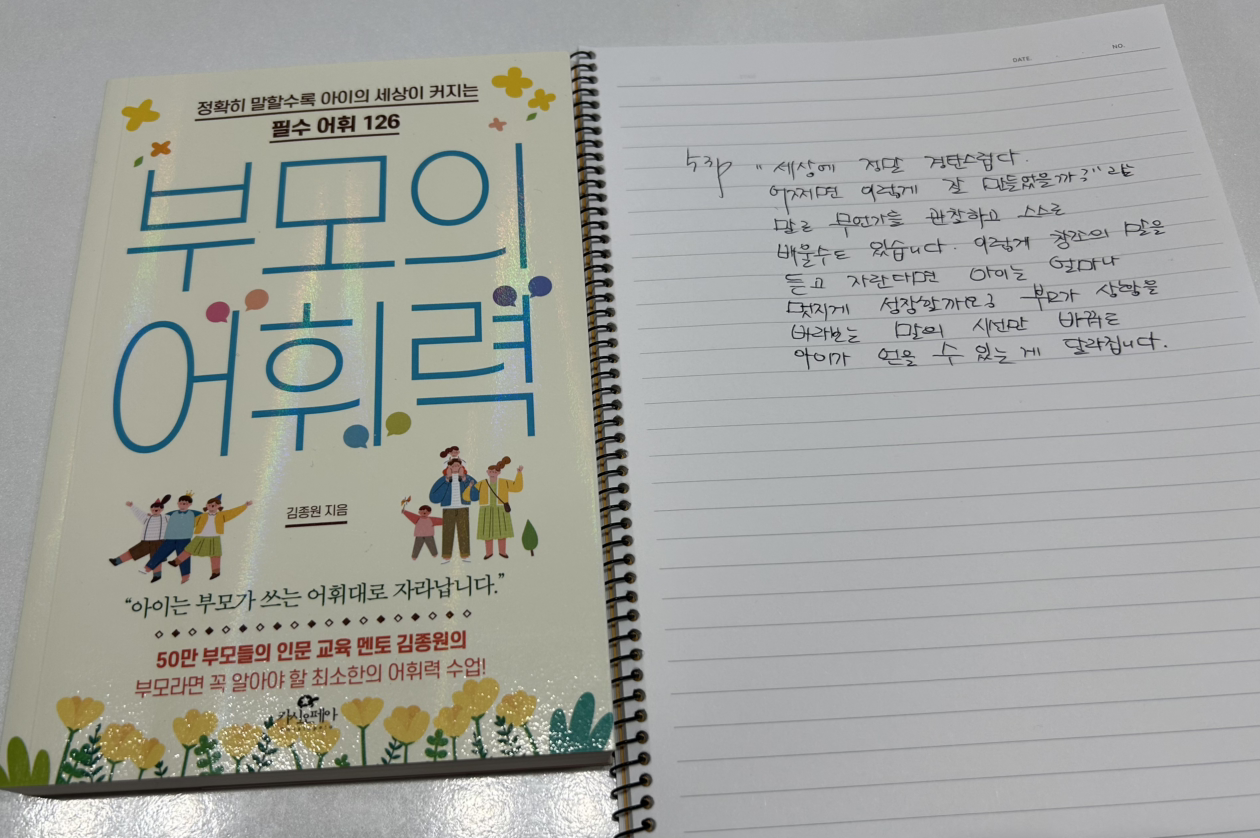 정확히 말할수록 아이의 세상이 커지는
필수 어휘 126
부모의
어휘력
김종원 지음
“아이는 부모가 쓰는 어휘대로 자라납니다.”
50만 부모들의 인문 교육 멘토 김종원의
부모라면 꼭 알아야 할 최소한의 어휘력 수업!
카시오페아
DATE.
NO.
"세상에 정말 경탄스럽다.
어쩌면 이렇게 잘 만들었을까?" 라는
말로 무언가를 관찰하고 스스로
배울수도 있습니다. 이렇게 창조의 말을
듣고 자란다면 아이는 얼마나
멋지게 성장할까요? 부모가 상황을
바라보는 말의 시선만 바꿔도
아이가 얻을 수 있는 게 달라집니다.